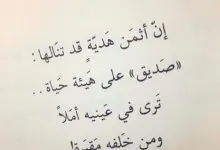 إنّ أثمَن هَديّةٍ قد تنَالها:
«صَديق» على هَيئة حَياة..
تَرى في عَينيه أمَلاً
ومن خَلفه مَقبَرة!